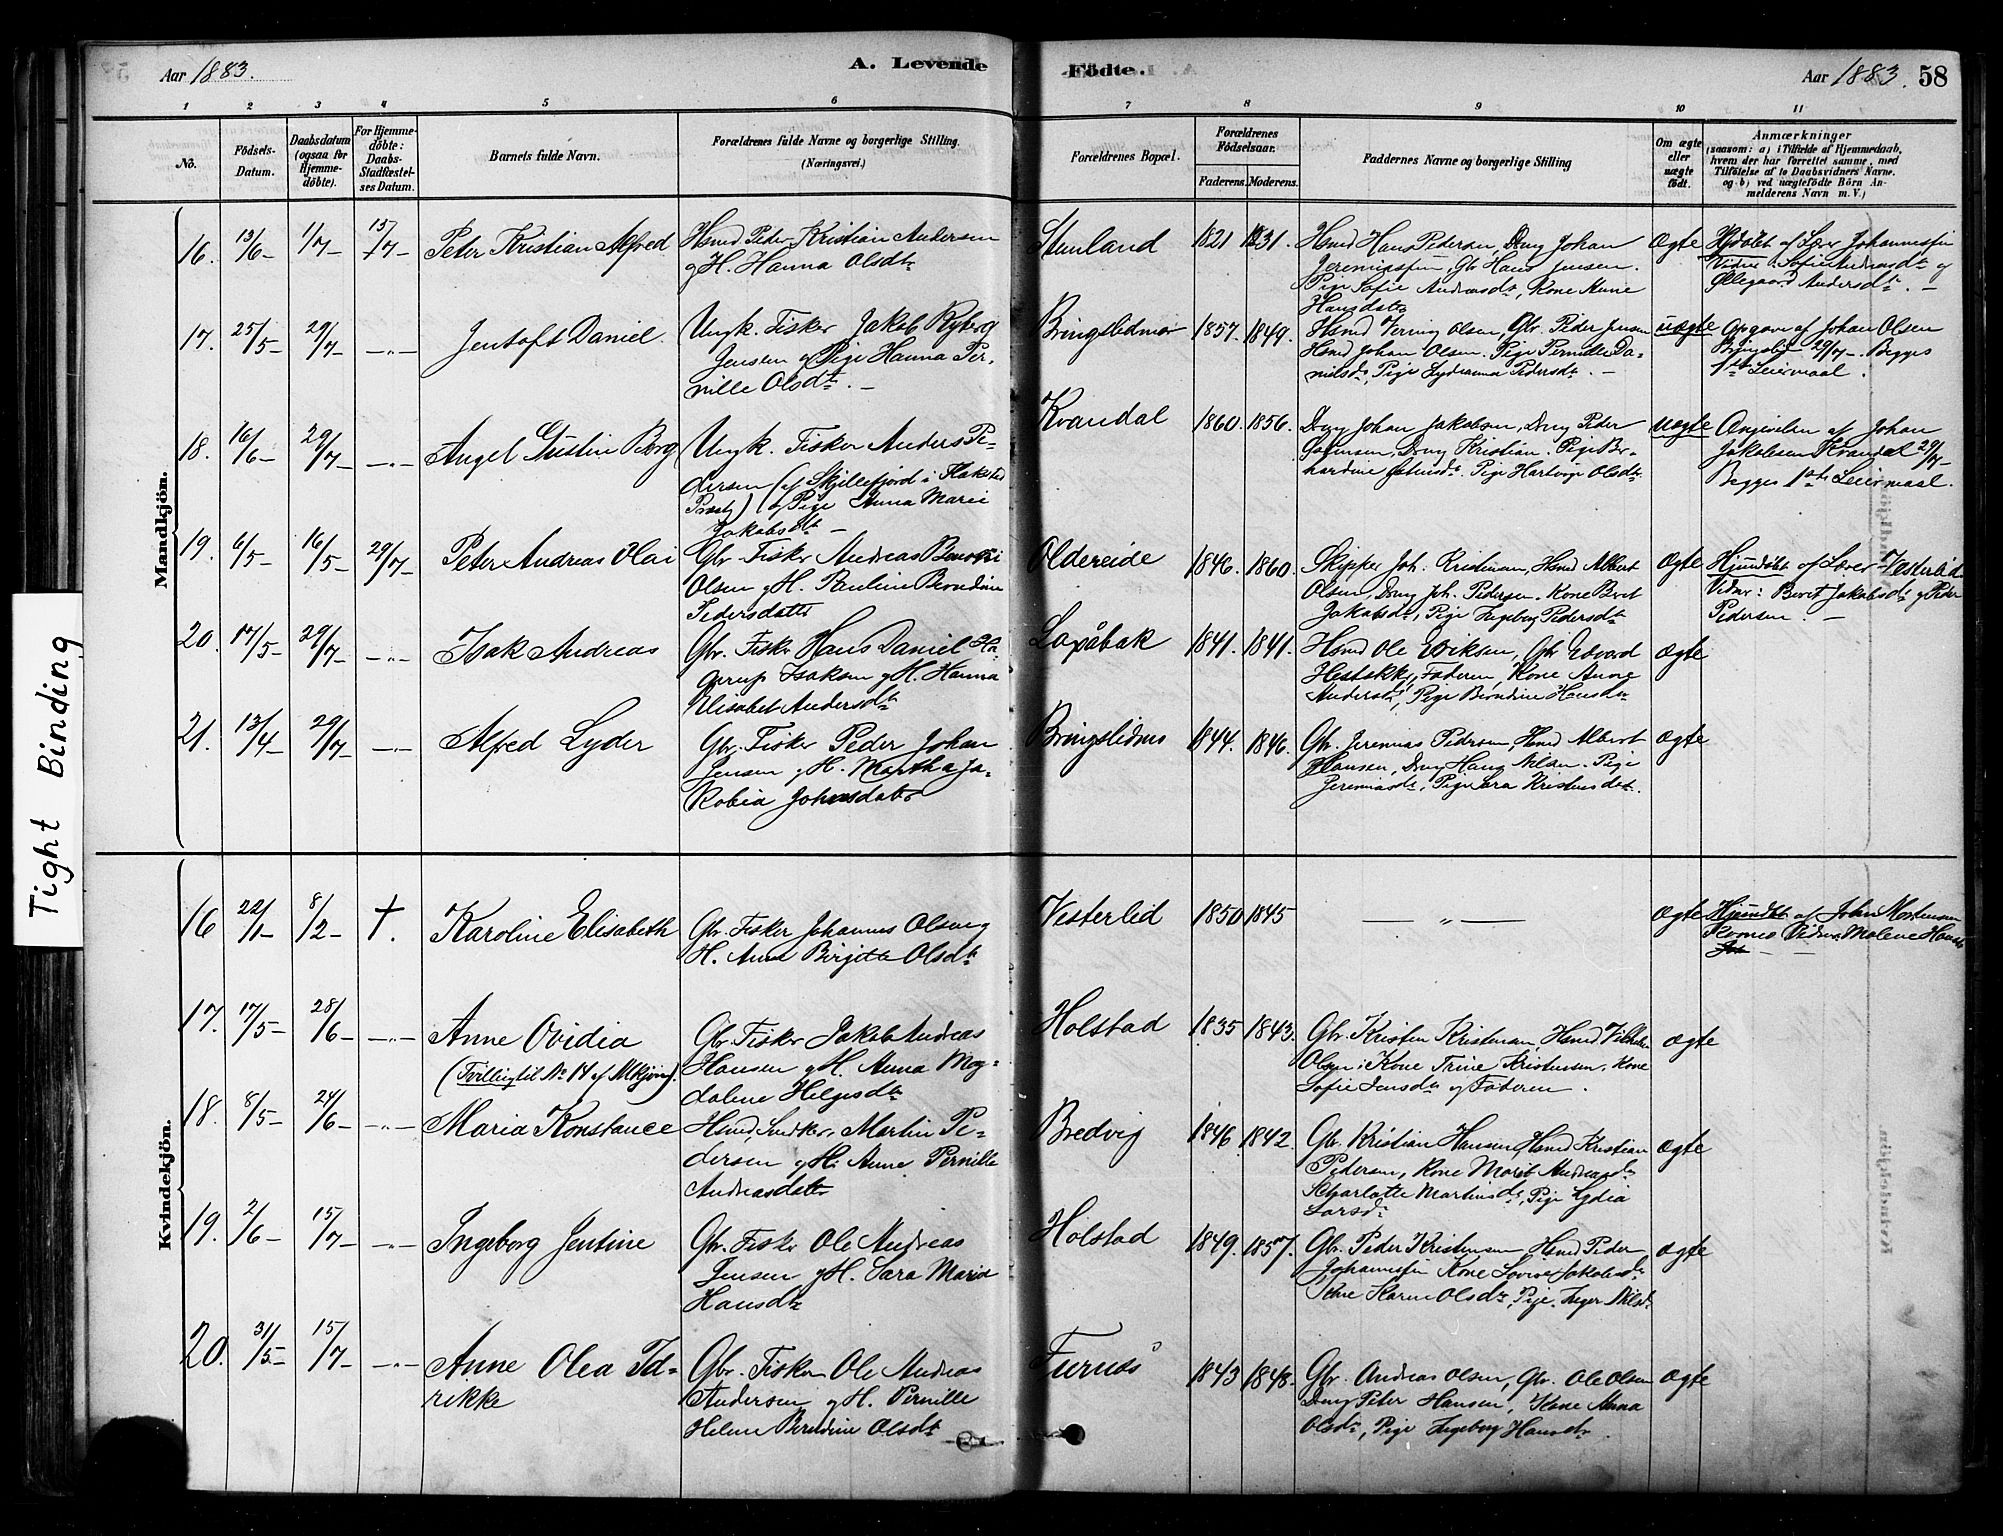 Aar 1883.
A. Levende
Födte.
Aar 1883. 58
1 2 3 4 5 6 7 8 9 10 11
No.
Födsels-
Datum.
Daabsdatum
(ogsaa for
Hjemme-
döbte).
For Hjemme-
döbte:
Daabs-
Stadfæstel-
ses Datum.
Barnets fulde Navn.
Forældrenes fulde Navne og borgerlige Stilling.
(Næringsvei.)
Forældrenes Bopæl.
Forældrenes
Födselsaar.
Faderens. Moderens.
Faddernes Navne og borgerlige Stilling
Om ægte
eller
uægte
födt.
Anmærkninger
(saasom: a) i Tilfælde af Hjemmedaab,
hvem der har forrettet samme, med
Tilföielse af to Daabsvidners Navne.
og b) ved uægtefödte Börn An-
melderens Navn m. V.)
Tight Binding
Mandkjön.
16. 13/6- 1/7- 15/7- Peter Kristian Alfred
Hsmd Peder Kristian Andersen
g H. Hanna Olsdtr
Stenland 1821 1831.
Hsmd Hans Pedersen, Dreng Johan
Jeremiassen, Gbr Hans Jensen.
Pige Sofie Andreasdtr, Kone Anne
Hansdatter
Ægte
Hjdöbt af Lærer Johannessen
Vidner: Sofie Andreasdtr og
Ellegaard Andersdtr. -
17. 25/5- 29/7- -„- Jentoft Daniel.
Ungk. Fisker Jakob Ryberg
Jensen og Pige Hanna Per-
nille Olsdtr. -
Bringslidmar 1857. 1849.
Hsmd Verning Olsen, Gbr. Peder Jensen
Hsmd Johan Olsen. Pige Pernille Da-
nielsdr, Pige Lydianna Pedersdtr. -
uægte
Opgave af Johan Olsen
Bringslid 29/7-. Begges
1ste Leiermaal.
18. 16/6- 29/7- -„- Angel Gustin Borg
Ungk. Fisker Anders Pe-
dersen (af Skjellefjord i Flakstad
Præstg) og Pige Anna Marie
Jakobsdtr -
Kvandal 1860. 1856.
Dreng Johan Jakobsen, Dreng Peder
Johnsen, Dreng Kristian. Pige Ber-
hardine Jensdr. Pige Hartvige Olsdtr.
uægte
Angivelse af Johan
Jakobsen Kvandal 29/7-
Begges 1ste Leiermaal.
19. 6/5- 16/5- 29/7- Peter Andreas Olai
Gbr. Fisker Andreas Benoni
Olsen g H. Pauline Berndine
Pedersdatter
Oldereide 1846. 1860.
Skipper Joh. Kristensen, Hsmd Albert
Olsen, Dreng Joh. Pedersen. Kone Beret
Jakobsdr, Pige Ingeborg Pedersdtr
Ægte
Hjemdöbt af Lærer Vesterlid
Vidner: Beret Jakobsdtr g Peder
Pedersen. -
20. 17/5- 29/7- -„- Isak Andreas
Gbr. Fisker Hans Daniel Ha-
gerup Isaksen g H. Hanna
Elisabet Andersdtr
Laxåbak 1841. 1841.
Hsmd Ole Eriksen, Gbr Edvard
Hestakker, Faderen, Kone Anne
Andersdtr, Pige Berndine Hansdtr
Ægte
21. 13/4- 29/7- -„- Alfred Lyder
Gbr. Fisker Peder Johan
Jensen g H. Martha Ja-
kobia Johnsdatter
Bringslidmo 1844. 1846.
Gbr. Jeremias Pedersen, Hsmd Albert
Hansen, Dreng Hans Nilsen. Pige
Jeremiasdtr, Pige Sara Kristensdatt.
Ægte
Kvindekjön.
16 22/1- 8/2- †. Karoline Elisabeth
Gbr. Fisker Johannes Olsen g
H. Anne Birgitte Olsdtr
Vesterlid 1850 1845
— „ —
Ægte
Hjemdöbt af John Mortensen
Kvænes Vidner: Malene Hansdtr
17. 17/5- 28/6- -„- Anne Ovidia
(Tvilling til No 14 af Mkjön).
Gbr. Fisker Jakob Andreas
Hansen g H. Anna Mag-
dalene Helgesdtr
Holstad 1835 1843.
Gbr. Kristen Kristensen, Hsmd Vilhelm
Olsen, Kone Trine Kristensen, Kone
Sofie Jensdtr og Faderen.
Ægte
18. 8/5- 24/6- -„- Maria Konstance
Hsmd, Snedker, Martin Pe-
dersen g H. Anne Pernille
Andreasdatter
Bredvig 1846. 1842.
Gbr. Kristian Hansen, Hsmd Kristian
Pedersen, Kone Marit Andreasdtr
Charlotte Martinsdr, Pige Lydia
Larsdr
Ægte
19. 2/6- 15/7- -„- Ingeborg Jentine
Gbr. Fisker Ole Andreas
Jensen g H. Sara Maria
Hansdtr
Holstad 1849. 1857.
Gbr. Peder Kristensen, Hsmd Peder
Johannessen Kone Lovise Jakobsdr
Kone Karen Olsdtr, Pige Inger Nilsdr
Ægte
20. 31/5- 15/7- -„- Anne Olea Id-
rikke
Gbr. Fisker Ole Andreas
Andersen g H. Pernille
Helene Berndine Olsdtr
Furnes 1843 1848.
Gbr. Andreas Olsen, Gbr. Ole Olsen
Dreng Peter Hansen, Kone Anna
Olsdtr, Pige Ingeborg Hansdtr.
Ægte